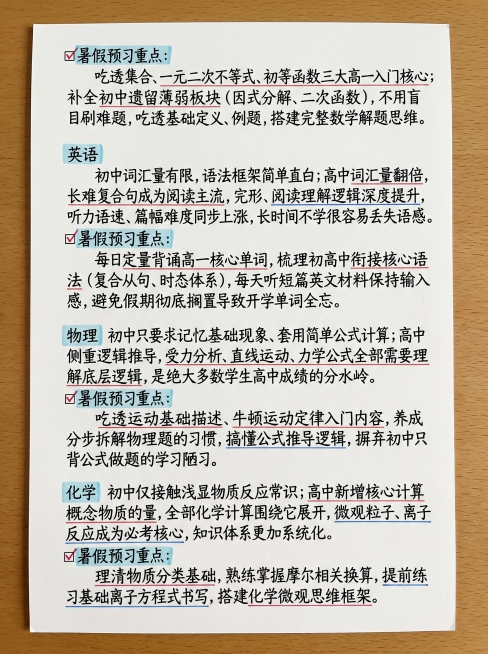 ☑暑假预习重点:
吃透集合、一元二次不等式、初等函数三大高一入门核心;
补全初中遗留薄弱板块(因式分解、二次函数),不用盲
目刷难题,吃透基础定义、例题,搭建完整数学解题思维。
英语
初中词汇量有限,语法框架简单直白;高中词汇量翻倍,
长难复合句成为阅读主流,完形、阅读理解逻辑深度提升,
听力语速、篇幅难度同步上涨,长时间不学很容易丢失语感。
☑暑假预习重点:
每日定量背诵高一核心单词,梳理初高中衔接核心语
法(复合从句、时态体系),每天听短篇英文材料保持输入
感,避免假期彻底搁置导致开学单词全忘。
物理 初中只要求记忆基础现象、套用简单公式计算;高中
侧重逻辑推导,受力分析、直线运动、力学公式全部需要理
解底层逻辑,是绝大多数学生高中成绩的分水岭。
☑暑假预习重点:
吃透运动基础描述、牛顿运动定律入门内容,养成
分步拆解物理题的习惯,搞懂公式推导逻辑,摒弃初中只
背公式做题的学习陋习。
化学 初中仅接触浅显物质反应常识;高中新增核心计算
概念物质的量,全部化学计算围绕它展开,微观粒子、离子
反应成为必考核心,知识体系更加系统化。
☑暑假预习重点:
理清物质分类基础,熟练掌握摩尔相关换算,提前练
习基础离子方程式书写,搭建化学微观思维框架。